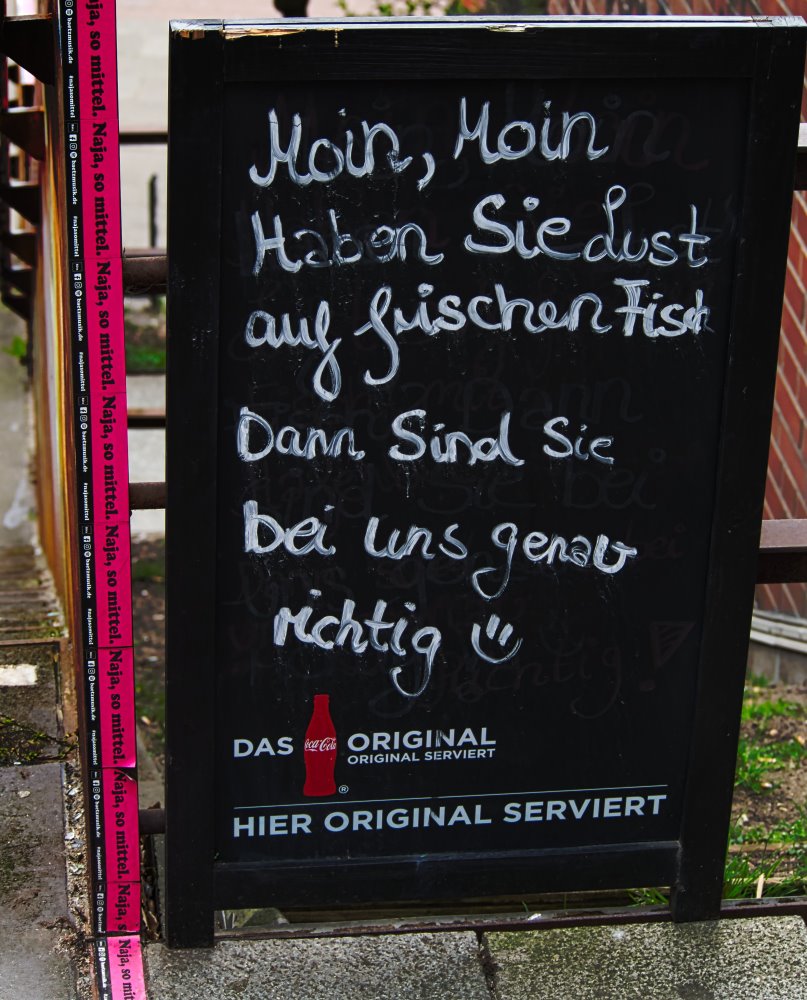 Moin, Moin
Haben Sie Lust
auf frischen Fisch
Dann Sind Sie
bei uns genau
richtig
DAS Coca-Cola ORIGINAL
ORIGINAL SERVIERT
®
HIER ORIGINAL SERVIERT
Naja, so mittel. Naja, so mittel. Naja, so mittel. Naja, so mittel. Naja, so mittel. Naja, so mittel. Naja, so mittel. Naja, so mit
#najasomittel baetzmusik.de